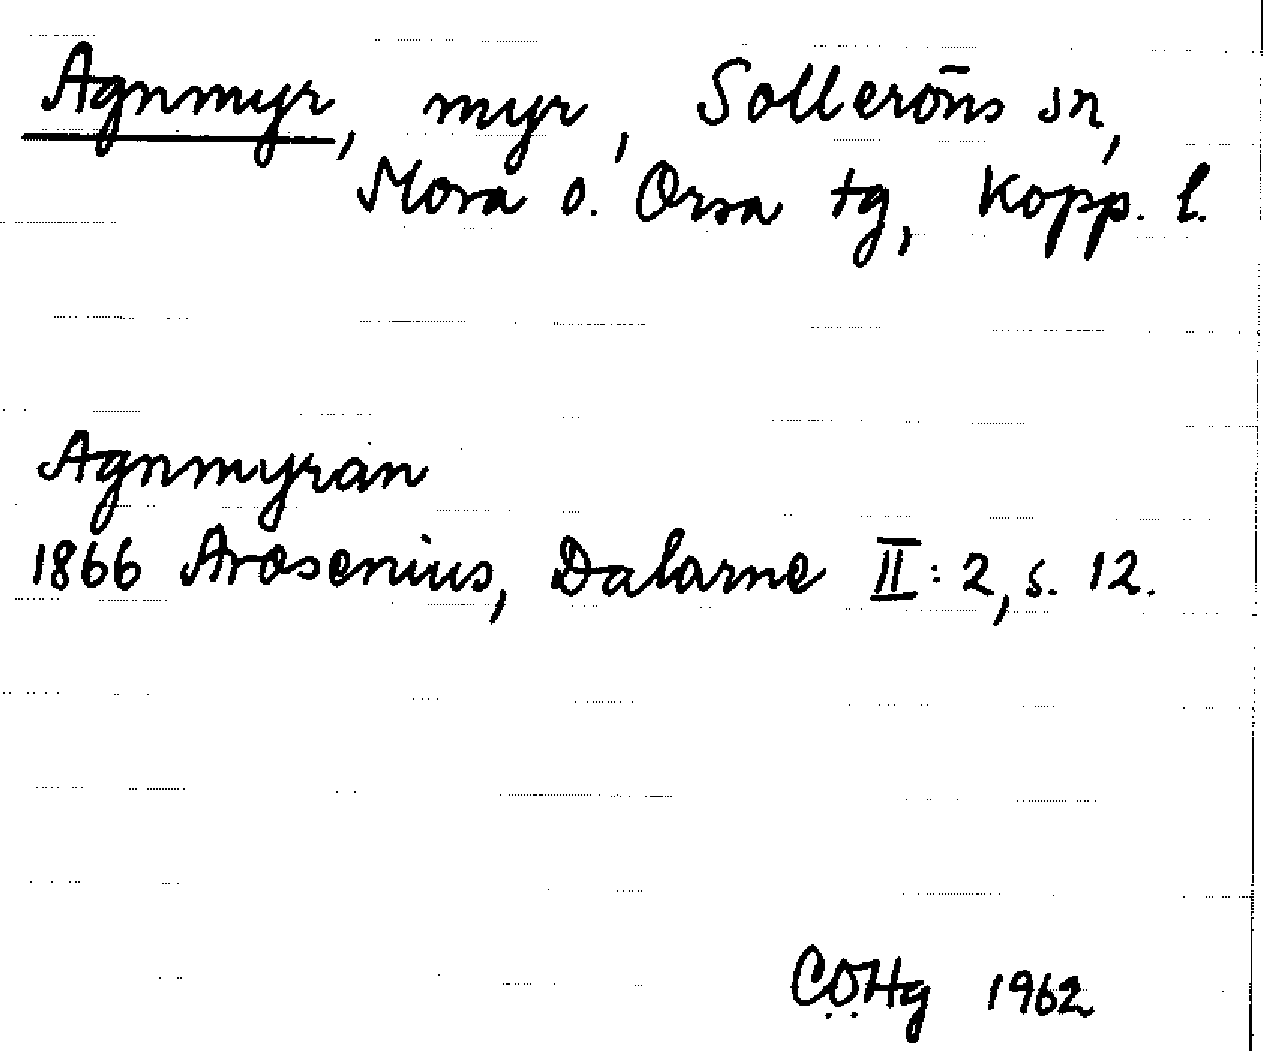 Agnmyr, myr, Solleröns sn,
Mora o. Orsa tg, Kopp. l.
Agnmyran
1866 Arosenius, Dalarne II:2, s. 12.
C.O.Hg 1962